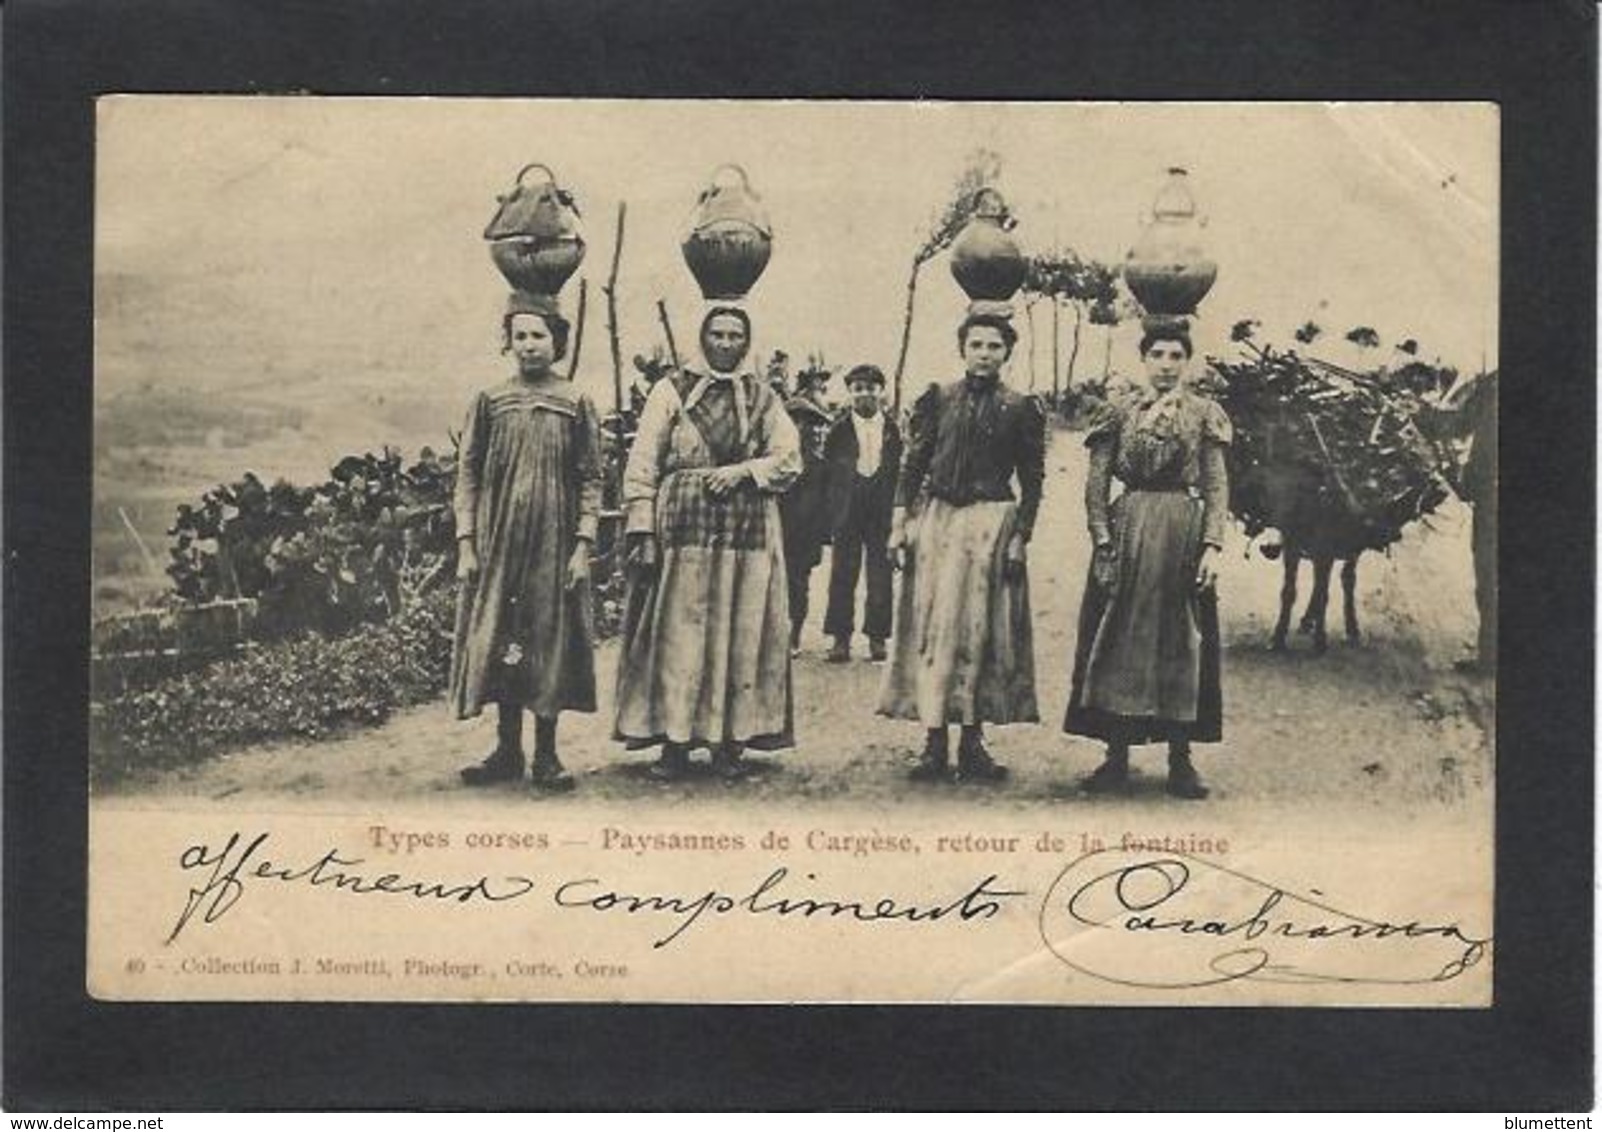 Types corses — Paysannes de Cargèse, retour de la fontaine
affectueux compliments Casabianca
40 - Collection J. Moretti, Photogr., Corte, Corse
delcampe.net
blumettent